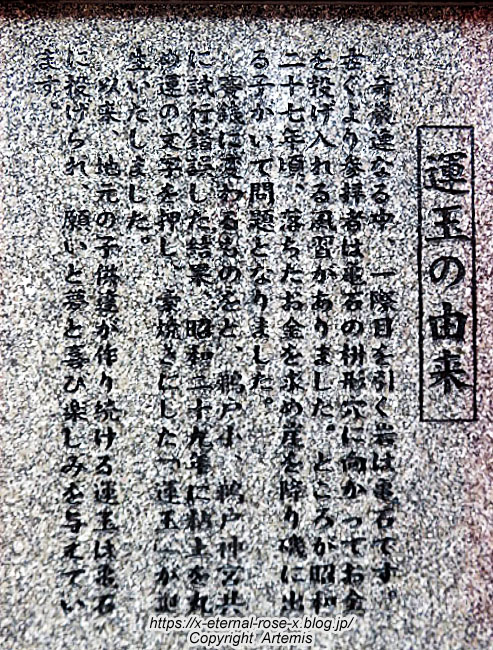 運玉の由来
奇岩連なる中、一際目を引く岩は亀石です。
古くより参拝者は亀石の枡形穴に向かってお金
を投げ入れる風習がありました。ところが昭和
二十七年頃、落ちたお金を求め崖を降り磯に出
る子がいて問題となりました。
賽銭に変わるものをと、鵜戸小、鵜戸神宮共
に試行錯誤した結果、昭和二十九年に粘土を丸
め運の文字を押し、素焼きにした「運玉」が誕
生いたしました。
以来、地元の子供達が作り続ける運玉は亀石
に投げられ、願いと夢と喜び楽しみを与えてい
ます。
https://x-eternal-rose-x.blog.jp/
Copyright Artemis